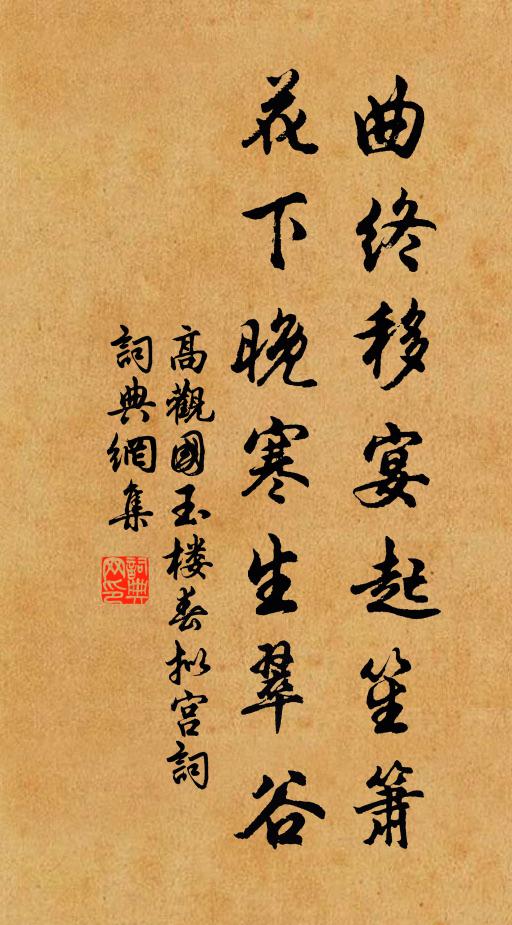 曲终移宴起笙箫
花下晚寒生翠谷
高觀國玉楼春拟宫詞
詞典網集
詞典网印